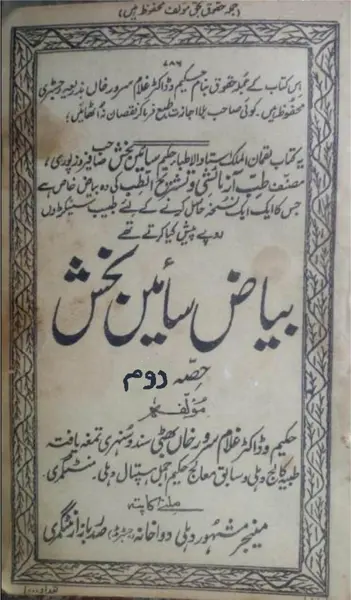 (جملہ حقوق بحق مؤلف محفوظ ہیں)
۷۸۶
اس کتاب کے جملہ حقوق بنام حکیم و ڈاکٹر غلام سرور خاں بذریعہ رجسٹری
محفوظ ہیں۔ کوئی صاحب بلا اجازت طبع فرما کر نقصان نہ اٹھائیں؛
یہ کتاب لقمان الملک استاد الاطبا حکیم سائیں بخش صاحب فیروزپوری؛
مصنف طب آزمائشی و تشریح الطب کی وہ بیاض خاص ہے
جس کا ایک ایک نسخہ حاصل کرنے کے لئے طبیب سینکڑوں
روپے پیش کیا کرتے تھے
بیاض سائیں بخش
حصہ دوم
مؤلفہ
حکیم و ڈاکٹر غلام سرور خاں بھٹی سند و سنہری تمغہ یافتہ
طبیہ کالج دہلی و سابق معالج حکیم اجمل ہسپتال دہلی۔ منٹگمری
ملنے کا پتہ
مینیجر مشہور دہلی دواخانہ (رجسٹرڈ) صدر بازار منٹگمری
تعداد ۱۰۰۰